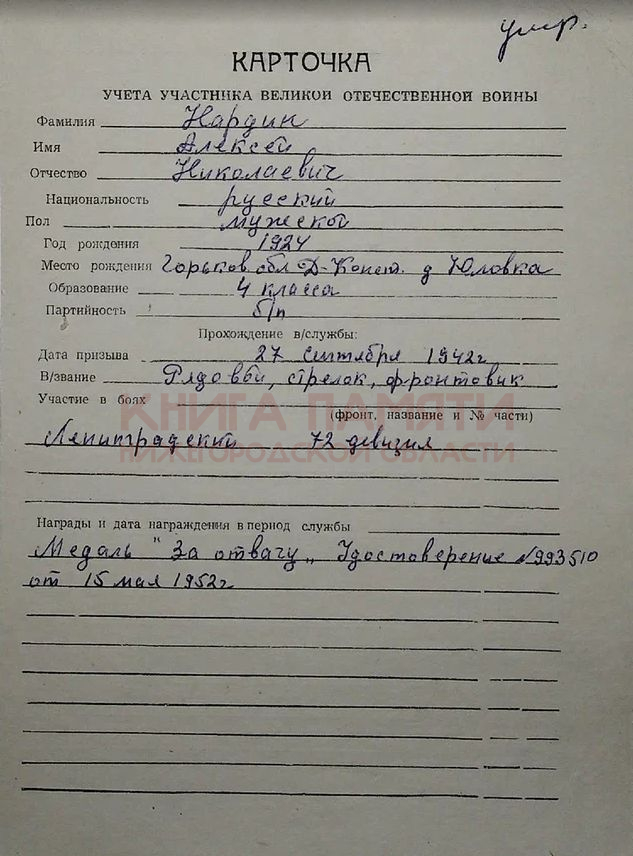 умр.
КАРТОЧКА
УЧЕТА УЧАСТНИКА ВЕЛИКОЙ ОТЕЧЕСТВЕННОЙ ВОЙНЫ
Фамилия Нардин
Имя Алексей
Отчество Николаевич
Национальность русский
Пол мужской
Год рождения 1924
Место рождения Горьков. обл Д-Конст. д Юловка
Образование 4 класса
Партийность б/п
Прохождение в/службы:
Дата призыва 27 сентября 1942г
В/звание Рядовой, стрелок, фронтовик
Участие в боях
(фронт, название и № части)
КНИГА ПАМЯТИ
Ленинградский 72 дивизия
НИЖЕГОРОДСКОЙ ОБЛАСТИ
Награды и дата награждения в период службы
Медаль "За отвагу„ Удостоверение №993510
от 15 мая 1952г